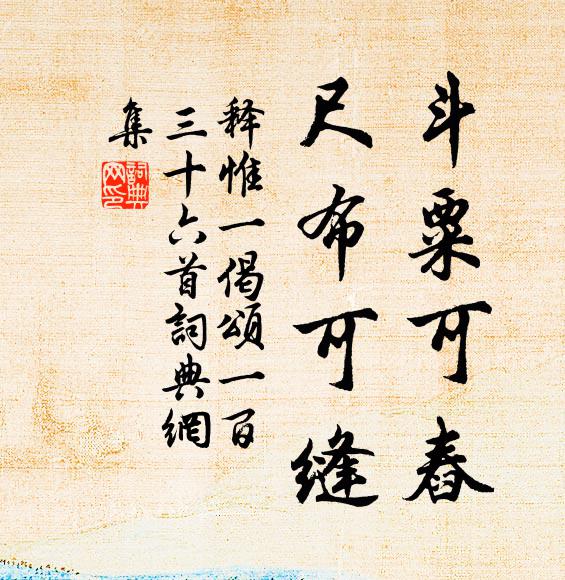 斗粟可舂
尺布可縫
释惟一偈頌一百
三十六首詞典網
集
詞典
网印